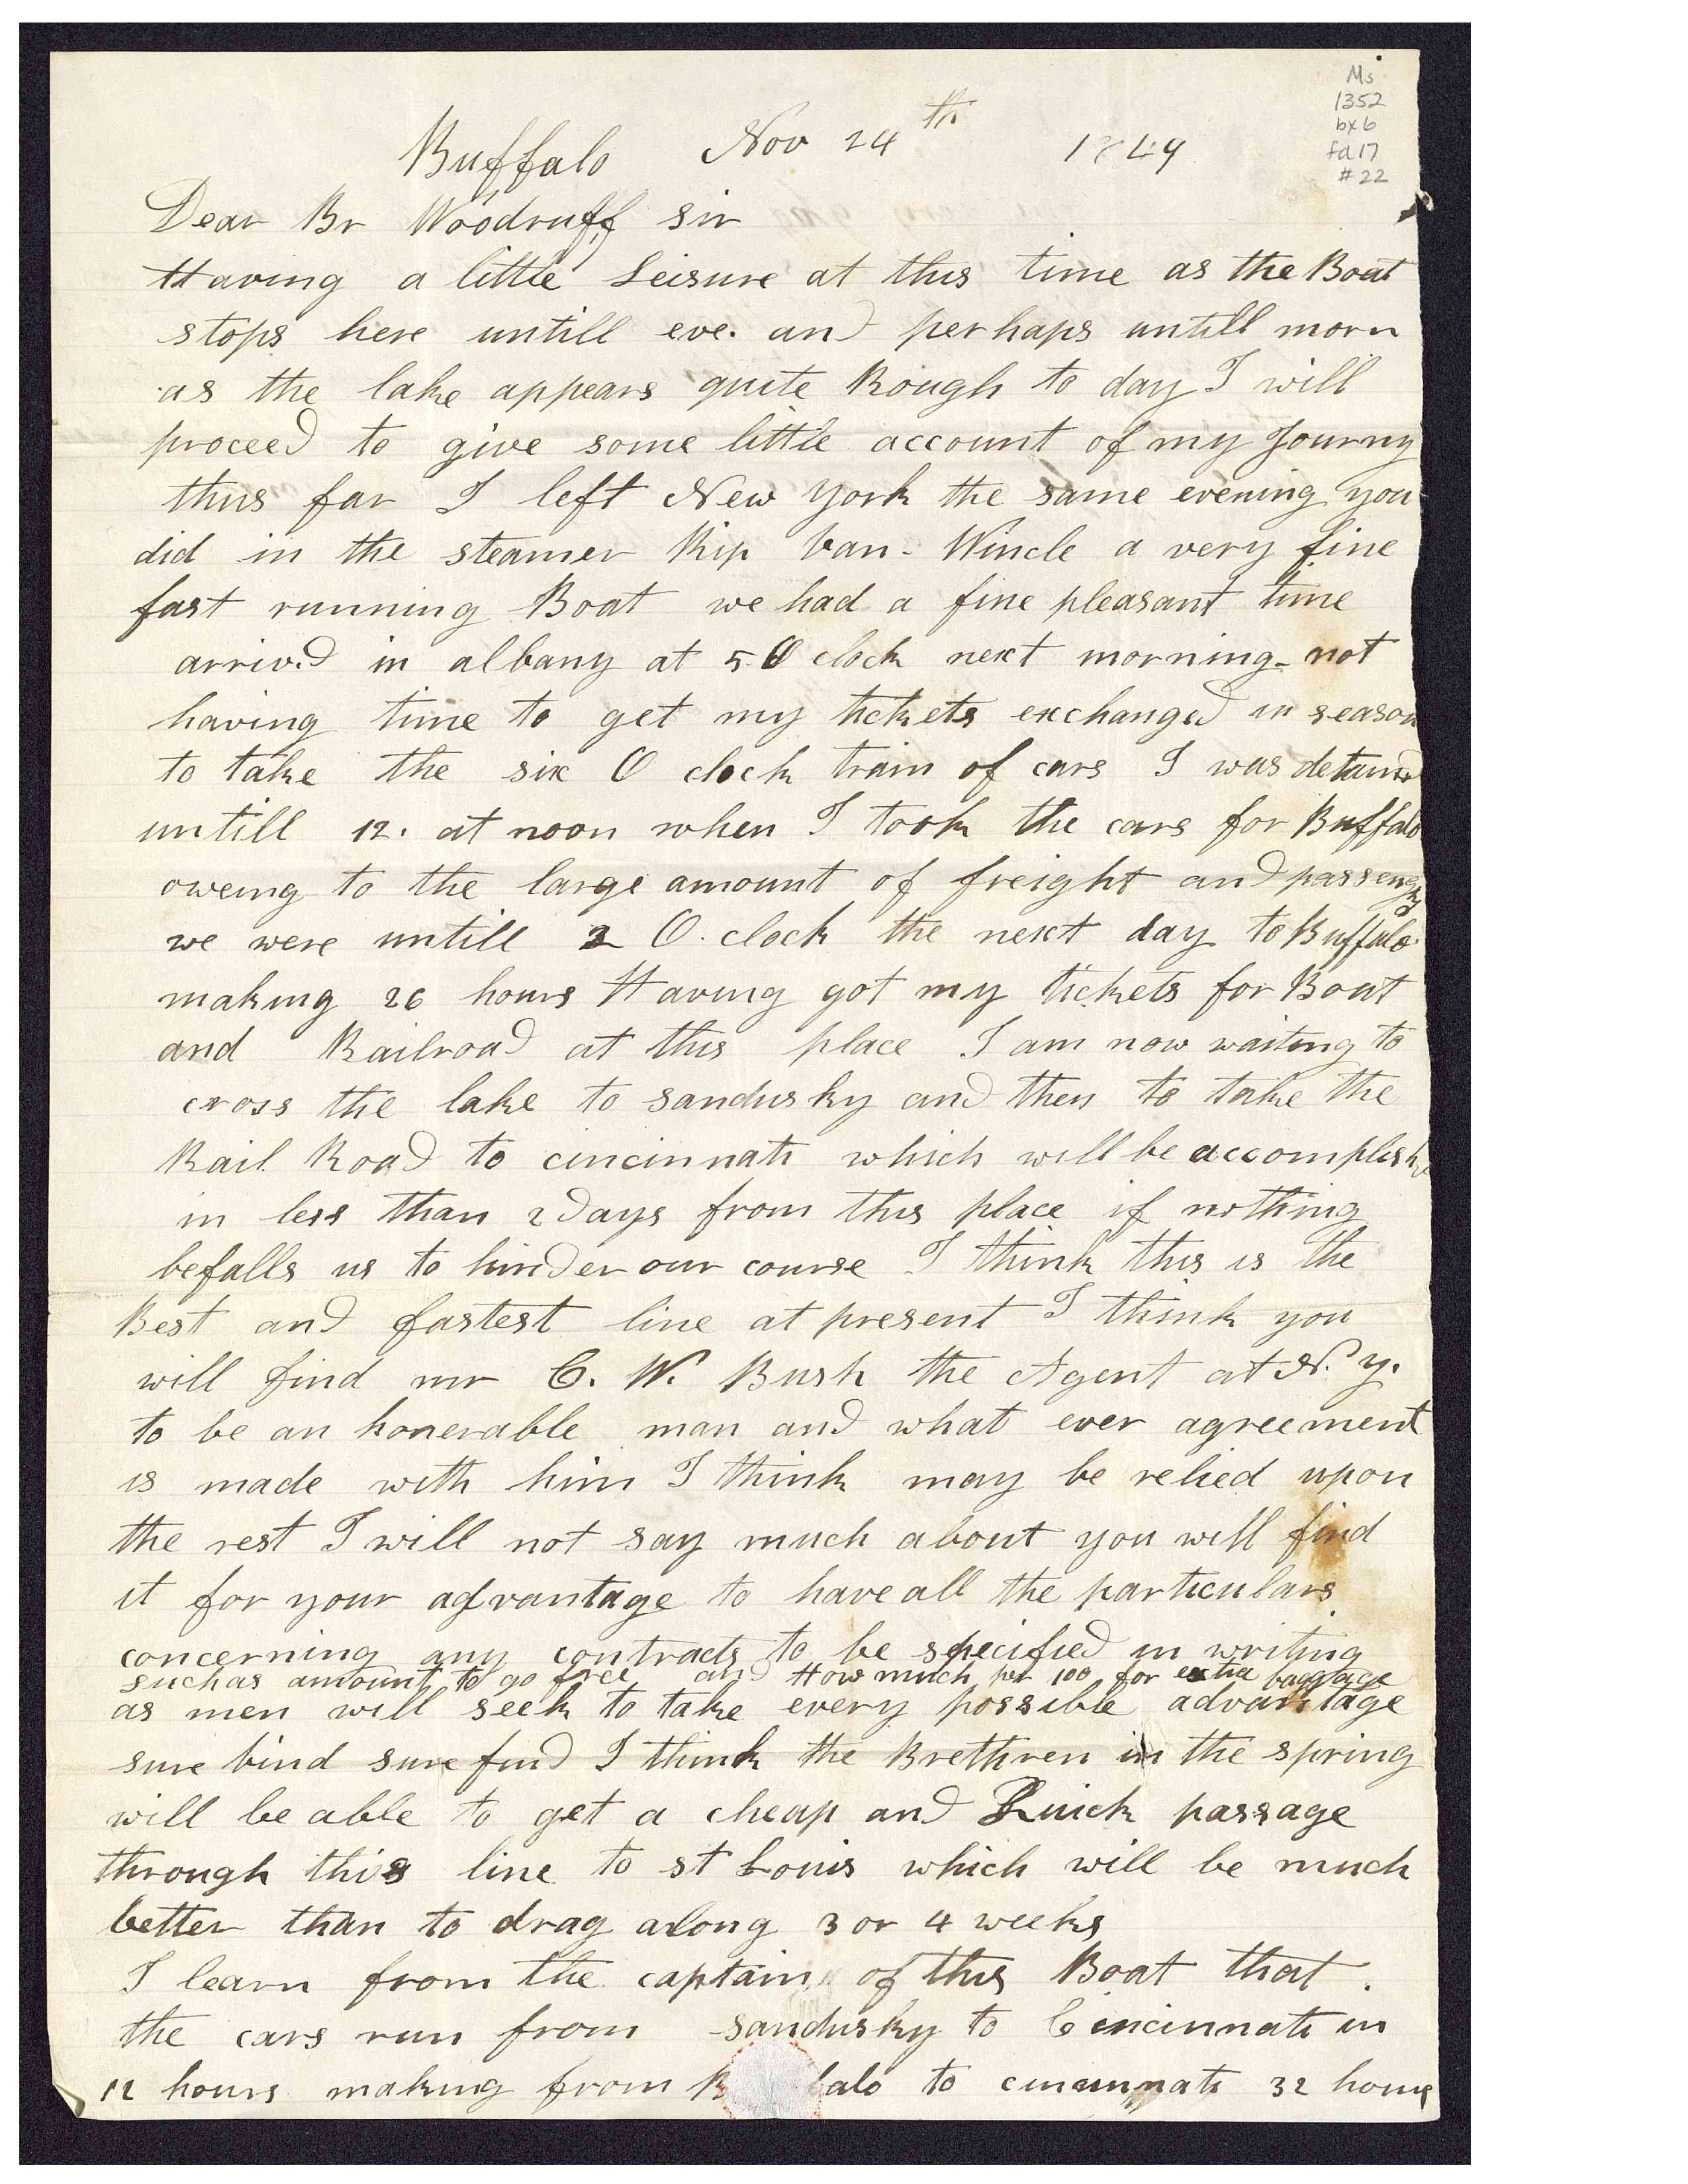 Ms
1352
bx 6
fd 17
#22
Buffalo Nov 24th 1849
Dear Br Woodruff sir
Having a little Leisure at this time as the Boat
stops here untill eve. and perhaps untill morn
as the lake appears quite Rough to day I will
proceed to give some little account of my Journy
thus far I left New York the same evening you
did in the steamer Rip Van-Wincle a very fine
fast running Boat we had a fine pleasant time
arrived in albany at 5 O clock next morning- not
having time to get my tickets exchanged in season
to take the six O clock train of cars I was detained
untill 12. at noon when I took the cars for Buffalo
oweing to the large amount of freight and passengers
we were untill 2 O. clock the next day to Buffalo
making 26 hours Having got my tickets for Boat
and Railroad at this place I am now waiting to
cross the lake to sandusky and then to take the
Rail Road to cincinnati which will be accomplished
in less than 2 days from this place if nothing
befalls us to hinder our course I think this is the
Best and fastest line at present I think you
will find mr C. W. Bush the Agent at N. Y.
to be an honerable man and what ever agreement
is made with him I think may be relied upon
the rest I will not say much about you will find
it for your advantage to have all the particulars
concerning any contracts to be specified in writing
such as amount to go free and How much per 100 for extra baggage
as men will seek to take every possible advantage
sure bind sure find I think the Brethren in the spring
will be able to get a cheap and Quick passage
through this line to st Louis which will be much
better than to drag along 3 or 4 weeks
I learn from the captain of this Boat that
the cars run from sandusky to Cincinnati in
12 hours making from B falo to cincinnati 32 hours